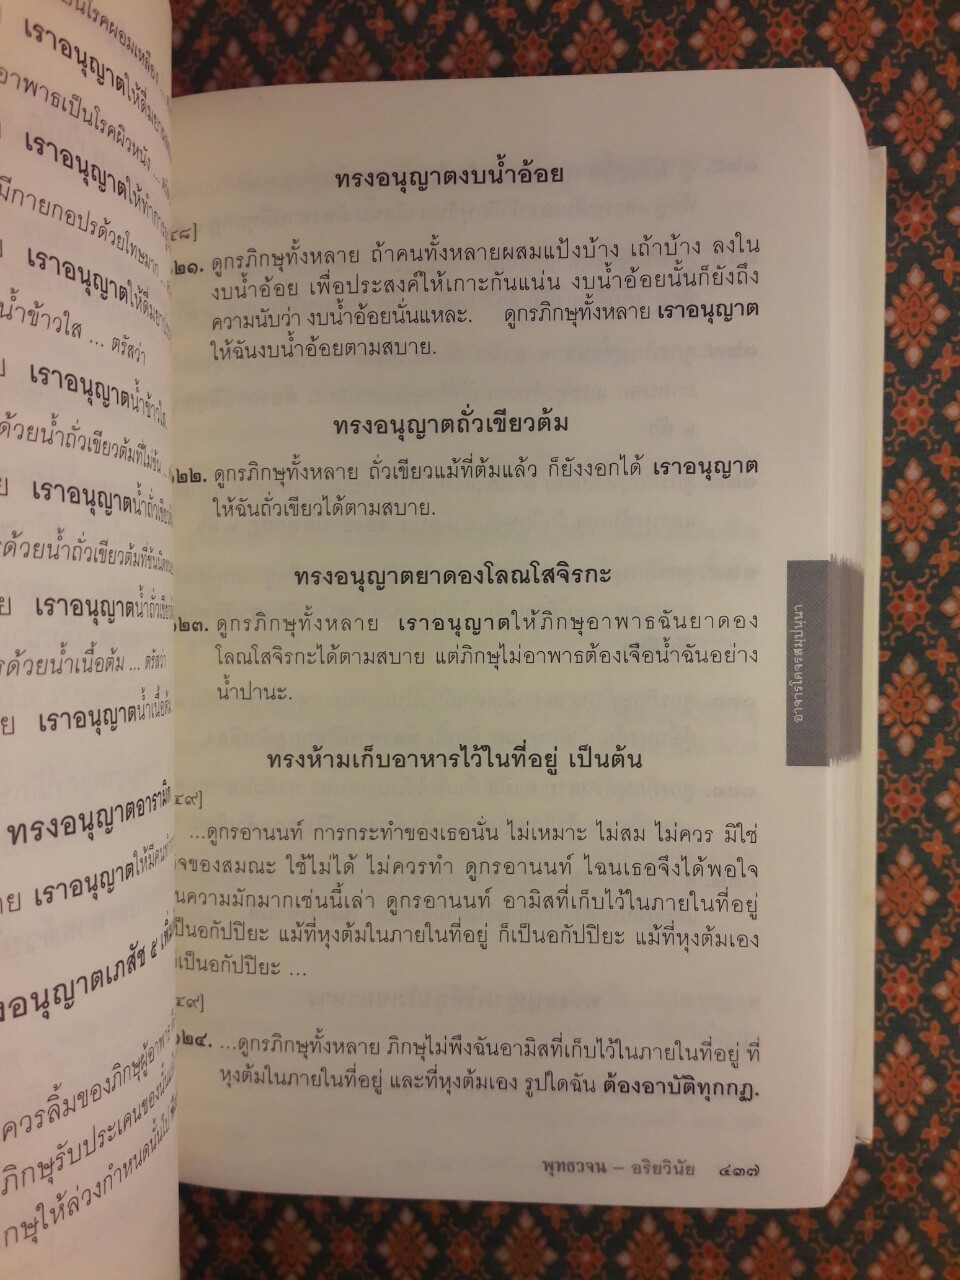 ป็นโรคผอมเหลือง ...
เราอนุญาตให้ดื่มยา
อาพาธเป็นโรคผิวหนัง ...
เราอนุญาตให้ทำการ
มีกายกอปรด้วยโทษมาก ...
เราอนุญาตให้ดื่มยา
น้ำข้าวใส ... ตรัสว่า
ย เราอนุญาตน้ำข้าวใส
ด้วยน้ำถั่วเขียวต้มที่ไม่ข้น ...
ย เราอนุญาตน้ำถั่วเขียว
ด้วยน้ำถั่วเขียวต้มที่ข้นนิดหน่อย
ย เราอนุญาตน้ำถั่วเขียว
รด้วยน้ำเนื้อต้ม ... ตรัสว่า
ย เราอนุญาตน้ำเนื้อต้ม
ทรงอนุญาตอารามิก
าย เราอนุญาตให้มีคน
งอนุญาตเภสัช ๕
ควรลิ้มของภิกษุผู้อาพาธ
ภิกษุรับประเคนของนั้น
กษุให้ล่วงกำหนดนั้นไป
ทรงอนุญาตงบน้ำอ้อย
๔๘]
๒๑. ดูกรภิกษุทั้งหลาย ถ้าคนทั้งหลายผสมแป้งบ้าง เถ้าบ้าง ลงใน
งบน้ำอ้อย เพื่อประสงค์ให้เกาะกันแน่น งบน้ำอ้อยนั้นก็ยังถึง
ความนับว่า งบน้ำอ้อยนั่นแหละ. ดูกรภิกษุทั้งหลาย เราอนุญาต
ให้ฉันงบน้ำอ้อยตามสบาย.
ทรงอนุญาตถั่วเขียวต้ม
๒๒. ดูกรภิกษุทั้งหลาย ถั่วเขียวแม้ที่ต้มแล้ว ก็ยังงอกได้ เราอนุญาต
ให้ฉันถั่วเขียวได้ตามสบาย.
ทรงอนุญาตยาดองโลณโสจิรกะ
๒๓. ดูกรภิกษุทั้งหลาย เราอนุญาตให้ภิกษุอาพาธฉันยาดอง
โลณโสจิรกะได้ตามสบาย แต่ภิกษุไม่อาพาธต้องเจือน้ำฉันอย่าง
น้ำปานะ.
ทรงห้ามเก็บอาหารไว้ในที่อยู่ เป็นต้น
๔๙]
...ดูกรอานนท์ การกระทำของเธอนั่น ไม่เหมาะ ไม่สม ไม่ควร มิใช่
จของสมณะ ใช้ไม่ได้ ไม่ควรทำ ดูกรอานนท์ ไฉนเธอจึงได้พอใจ
นความมักมากเช่นนี้เล่า ดูกรอานนท์ อามิสที่เก็บไว้ในภายในที่อยู่
ป็นอกัปปิยะ แม้ที่หุงต้มในภายในที่อยู่ ก็เป็นอกัปปิยะ แม้ที่หุงต้มเอง
เป็นอกัปปิยะ ...
๔๙]
๒๔. ...ดูกรภิกษุทั้งหลาย ภิกษุไม่พึงฉันอามิสที่เก็บไว้ในภายในที่อยู่ ที่
หุงต้มในภายในที่อยู่ และที่หุงต้มเอง รูปใดฉัน ต้องอาบัติทุกกฏ.
อาจารโคจรสมฺปนฺนา
พุทธวจน – อริยวินัย ๔๓๗